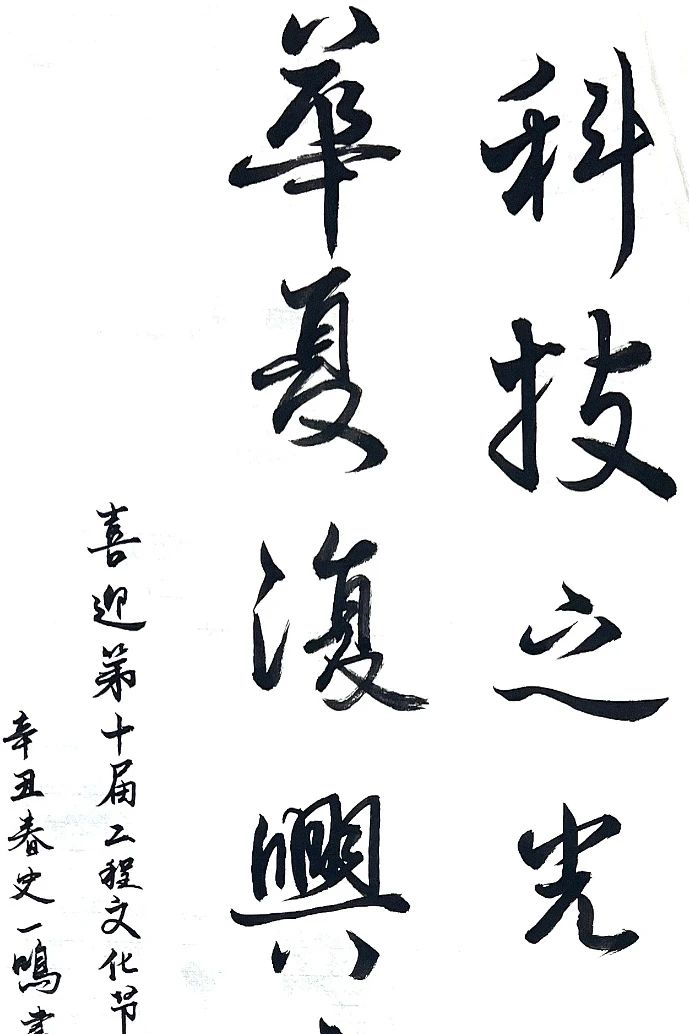 科技之光
華夏復興
喜迎第十届工程文化节
辛丑春史一鳴書